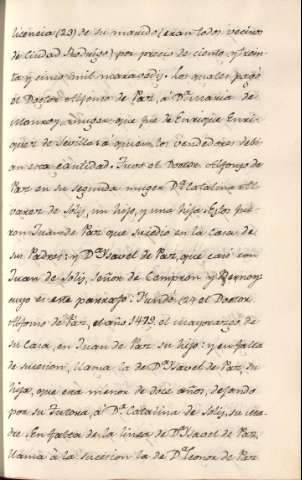 licencia (23) de su marido (eran todos vecinos
de Ciudad Rodrigo) por precio de ciento, y trein
ta y cinco mil maravedis. Los quales pagó
el Doctor Alfonso de Paz, á Dª Maria de
Monroy, muger que fue de Enrique Enri
quez de Sevilla á quien los vendedores debi
an esta cantidad. Tuvo el Doctor Alfonso de
Paz en su segunda muger Dª Catalina Al
varez de Solis, un hijo, y una hija. Estos fue
ron Juan de Paz que sucedio en la casa de
sus Padres: y Dª Ysavel de Paz, que casó con
Juan de Solis, Señor de Cempron y Bernoy
cuyo es este parrafo. Fundó (24) el Doctor
Alfonso de Paz, el año, 1479. el mayorazgo de
su Casa, en Juan de Paz su hijo: y en falta
de sucesion, llama la de Dª Ysavel de Paz, su
hija, que era menor de doce años, dejando
por su tutora, á Dª Catalina de Solis, su Ma
dre. En falta de la linea de Dª Ysavel de Paz,
llama á la sucesion la de Dª Leonor de Paz